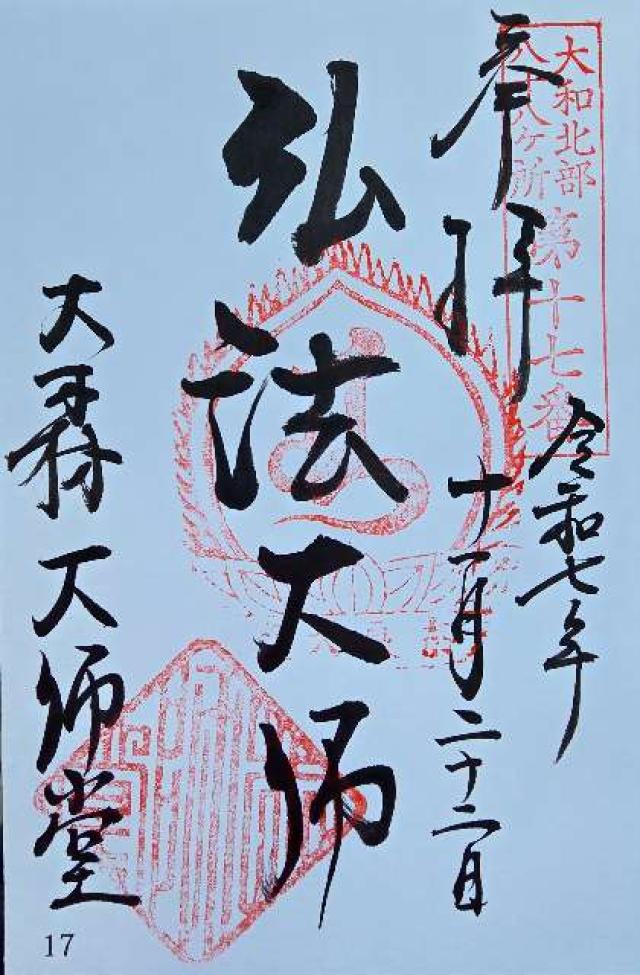 大和北部
八十八ヶ所
第十七番
奉拝
令和七年
十一月二十二日
弘法大師
大森大師堂
17